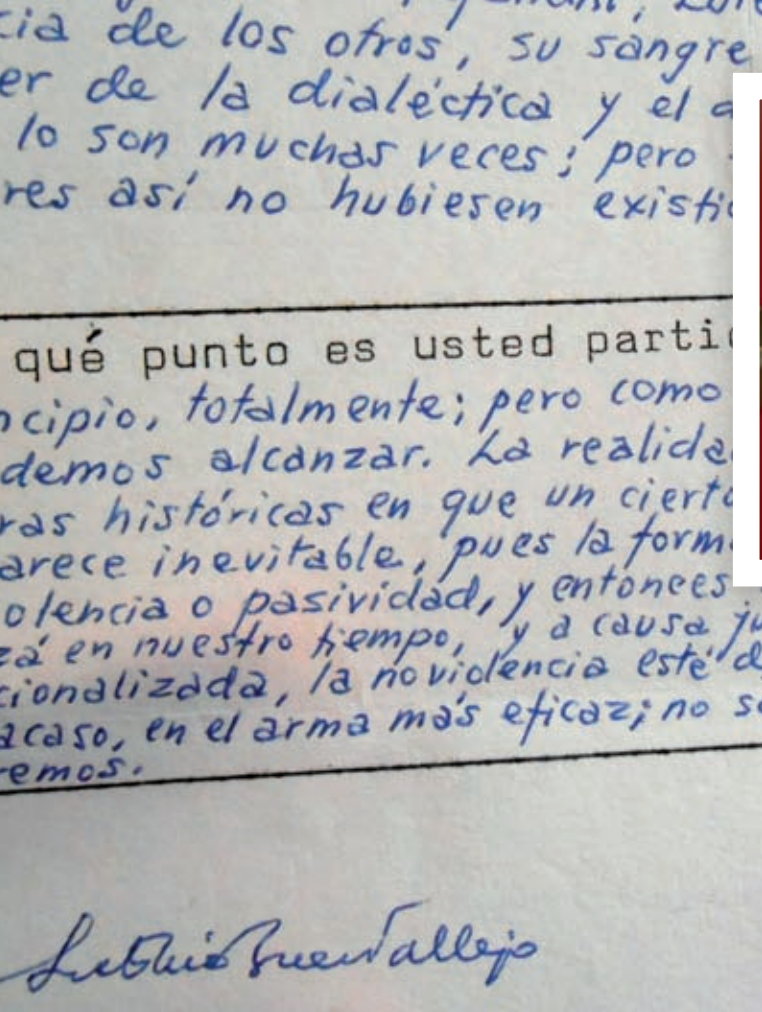 cia de los otros, su sangre
er de la dialéctica y el
lo son muchas veces; pero
res así no hubiesen existi
qué punto es usted parti
ncipio, totalmente; pero como
demos alcanzar. La realida
ras históricas en que un cierto
arece inevitable, pues la form
olencia o pasividad, y entonces
zá en nuestro tiempo, y a causa ju
cionalizada, la noviolencia esté d
acaso, en el arma más eficaz; no s
remos.
Antonio Buero Vallejo